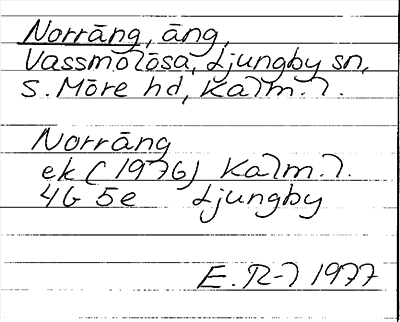 Norräng, äng,
Vassmolösa, Ljungby sn,
S. Möre hd, Kalm. l.
Norräng
ek (1976) Kalm. l.
4G 5e Ljungby
E. R-l 1977